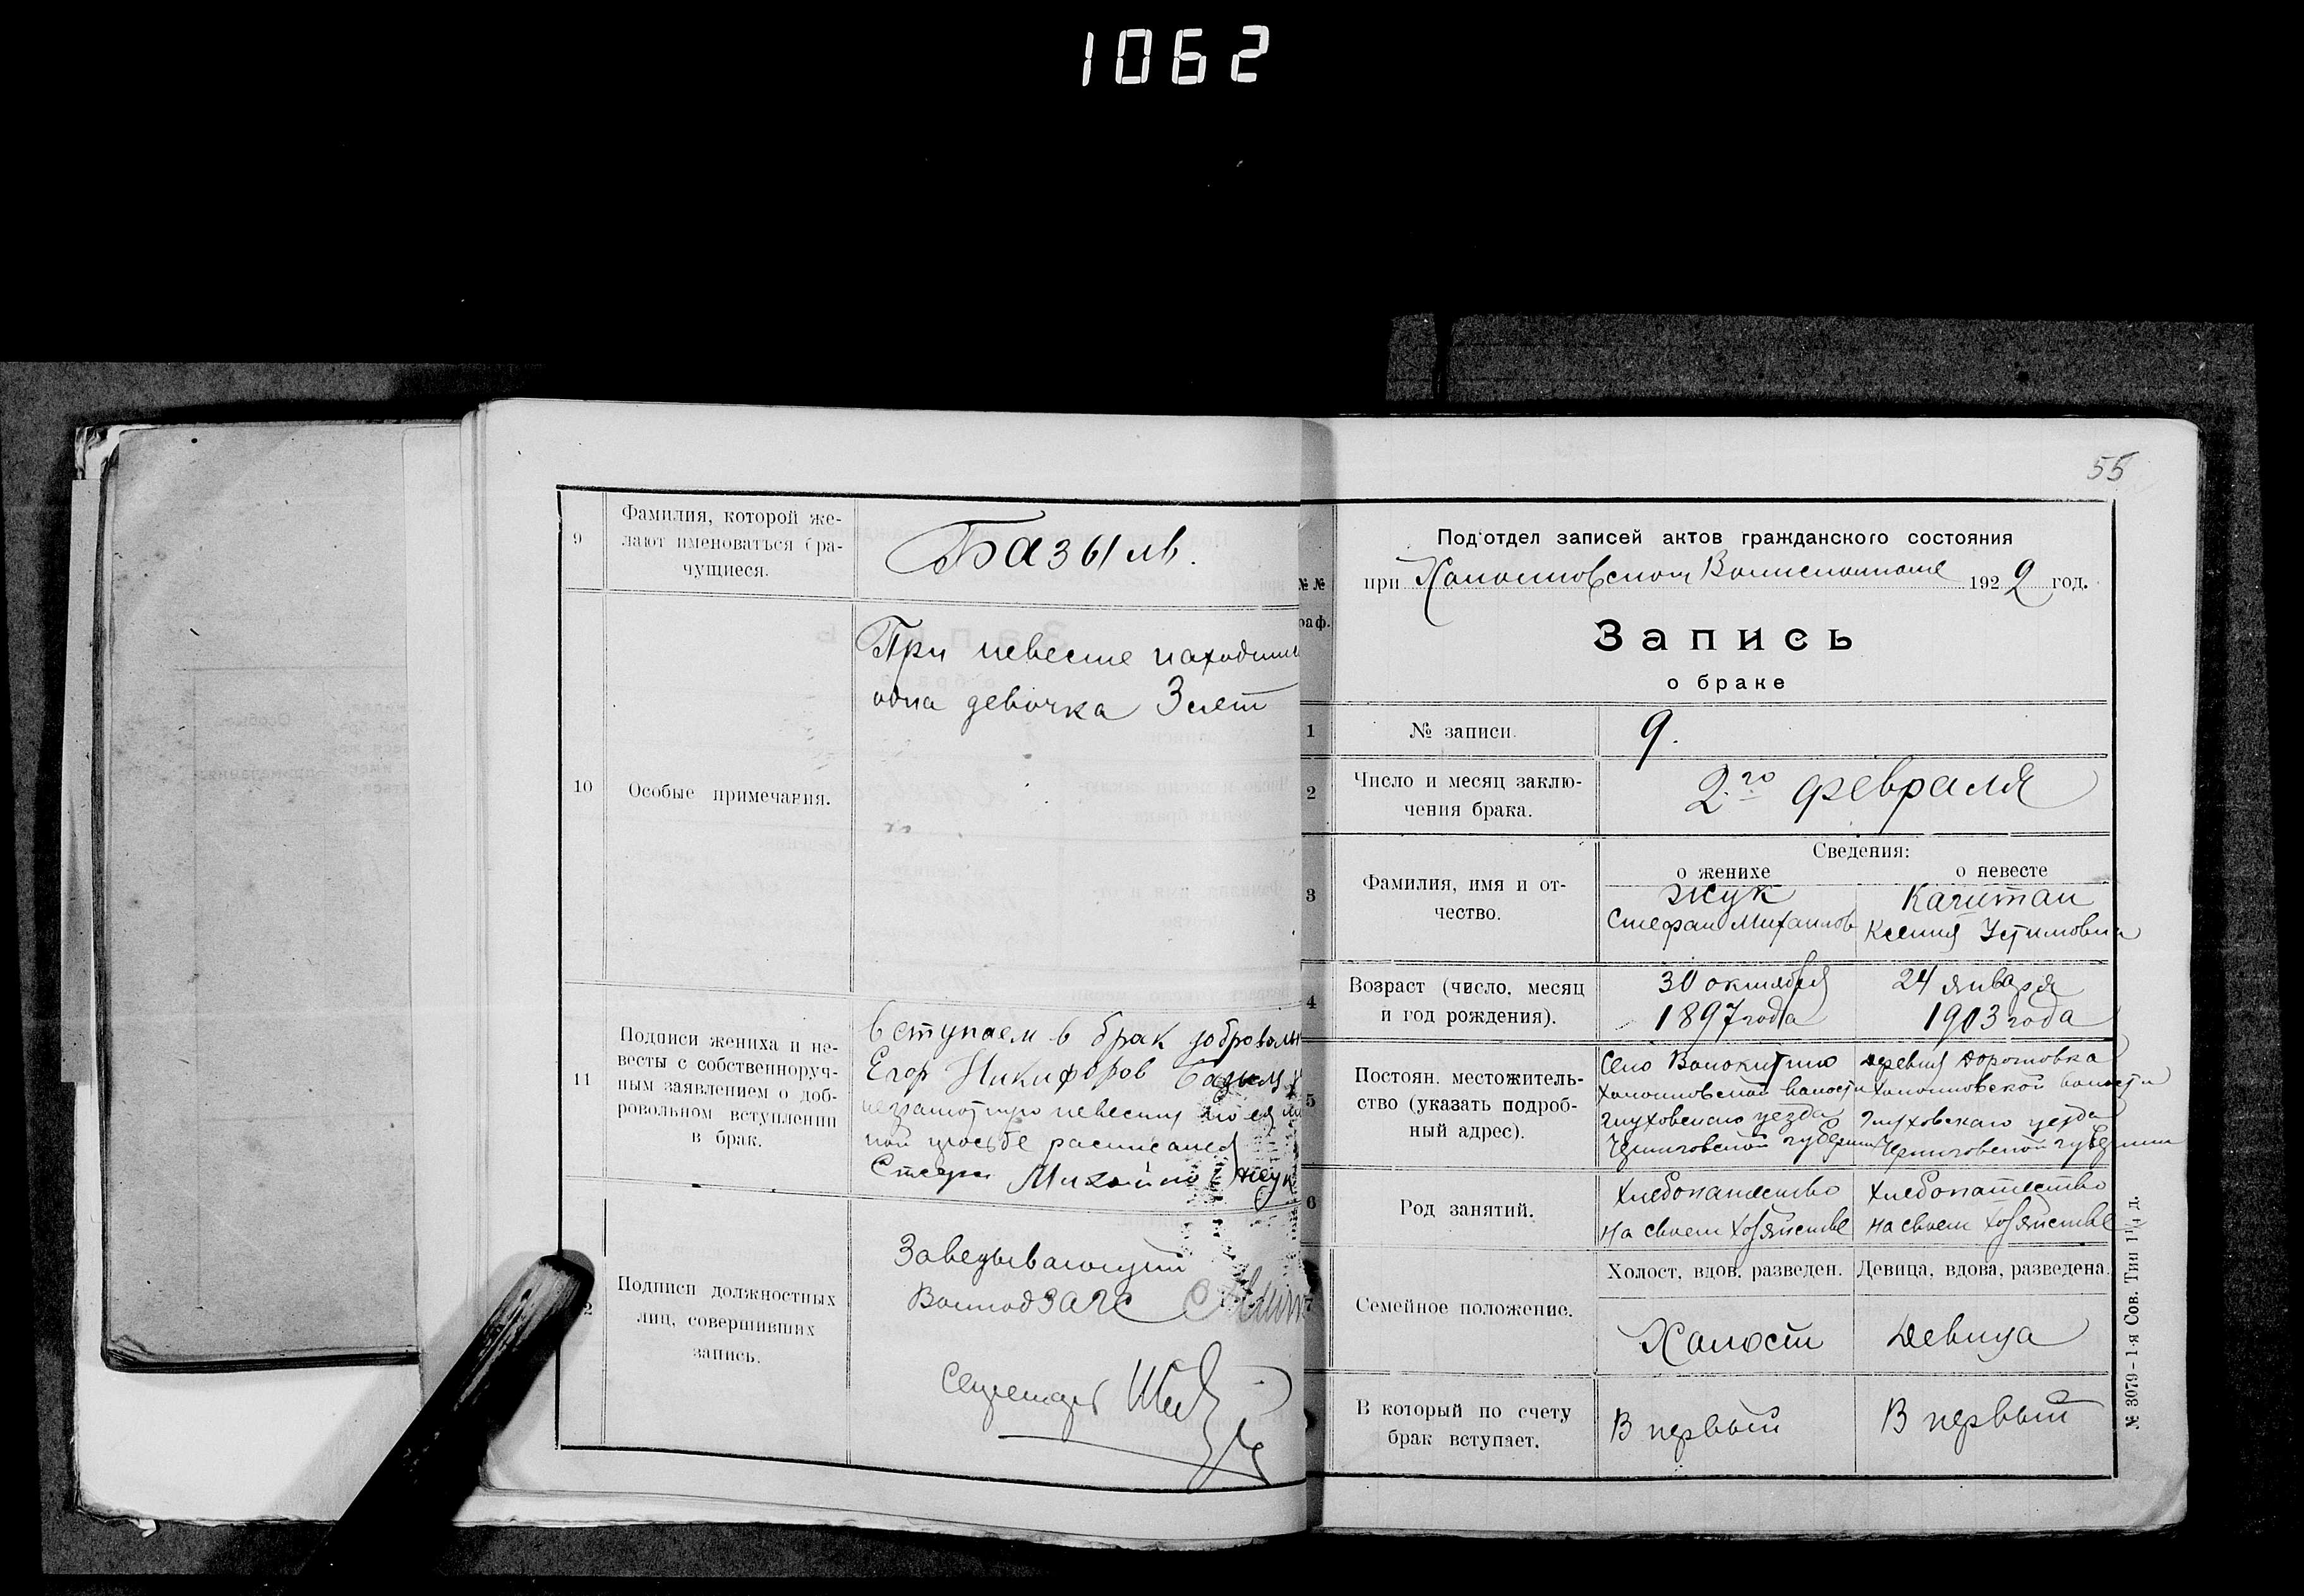 1062
9
Фамилия, которой же-
лают именоваться бра-
чущиеся.
Базыль.
10
Особые примечания.
При невесте находит
одна девочка 3 лет
11
Подписи жениха и не-
весты с собственноруч-
ным заявлением о доб-
ровольном вступлении
в брак.
Вступаем в брак добровольн
Егор Никифоров Базыль
неграмотную невесту по ея
ной просьбе расписался
Стефан Михайло Жук
2
Подписи должностных
лиц, совершивших
запись.
Заведывающий
ВолподЗАГС
Секретарь
55
№ №
раф.
Под'отдел записей актов гражданского состояния
при Холопковском Волисполкоме 1922 год.
Запись
о браке
1
№ записи.
9.
2
Число и месяц заклю-
чения брака.
2го февраля
3
Фамилия, имя и от-
чество.
Сведения:
о женихе
Жук
Стефан Михайлов
о невесте
Качитан
Ксения Устимовна
4
Возраст (число, месяц
и год рождения).
30 октября
1897 года
24 января
1903 года
5
Постоян. местожитель-
ство (указать подроб-
ный адрес).
Село Волокитино
Холопковской волости
Глуховского уезда
Черниговской губернии
деревня Дорошовка
Холопковской волости
Глуховского уезда
Черниговской губернии
6
Род занятий.
Хлебопашество
на своем хозяйстве
Хлебопашество
на своем хозяйстве
7
Семейное положение.
Холост, вдов, разведен.
Холост
Девица, вдова, разведена.
Девица
В который по счету
брак вступает.
В первый
В первый
№ 3079 – 1-я Сов. Тип